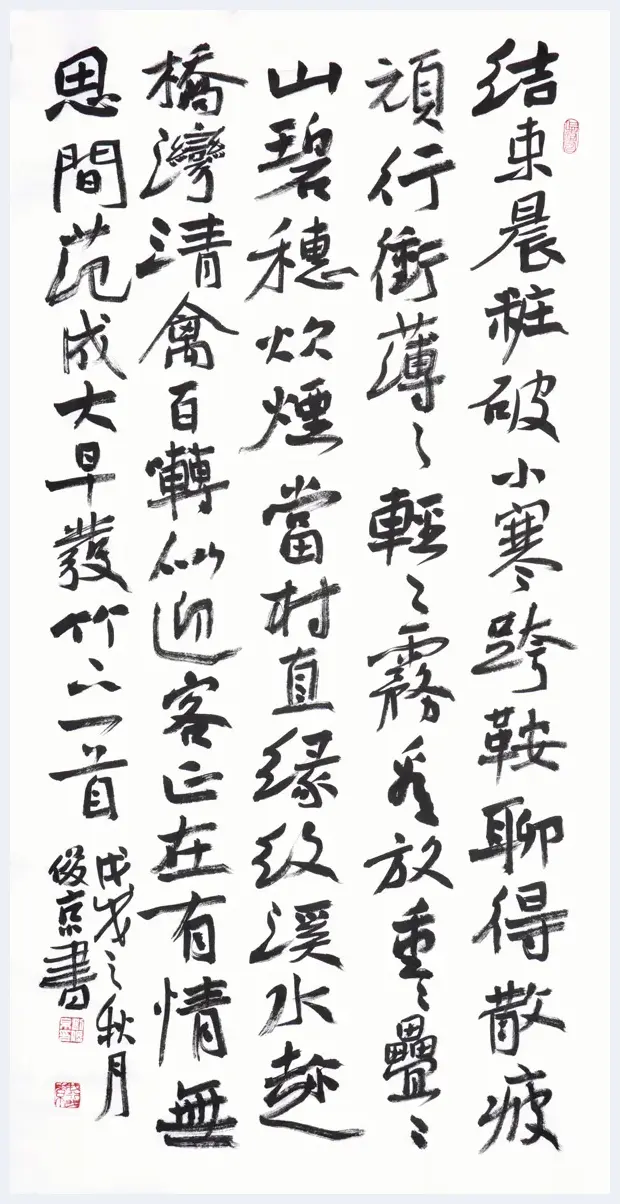 結束晨粧破小寒跨鞍聊得散疲
頑行衝薄〻輕〻霧看放重〻疊〻
山碧穗炊煙當村直緑紋溪水趂
橋灣清禽百囀似迎客正在有情無
思間范成大早發竹下一首
戊戌之秋月
俊京書